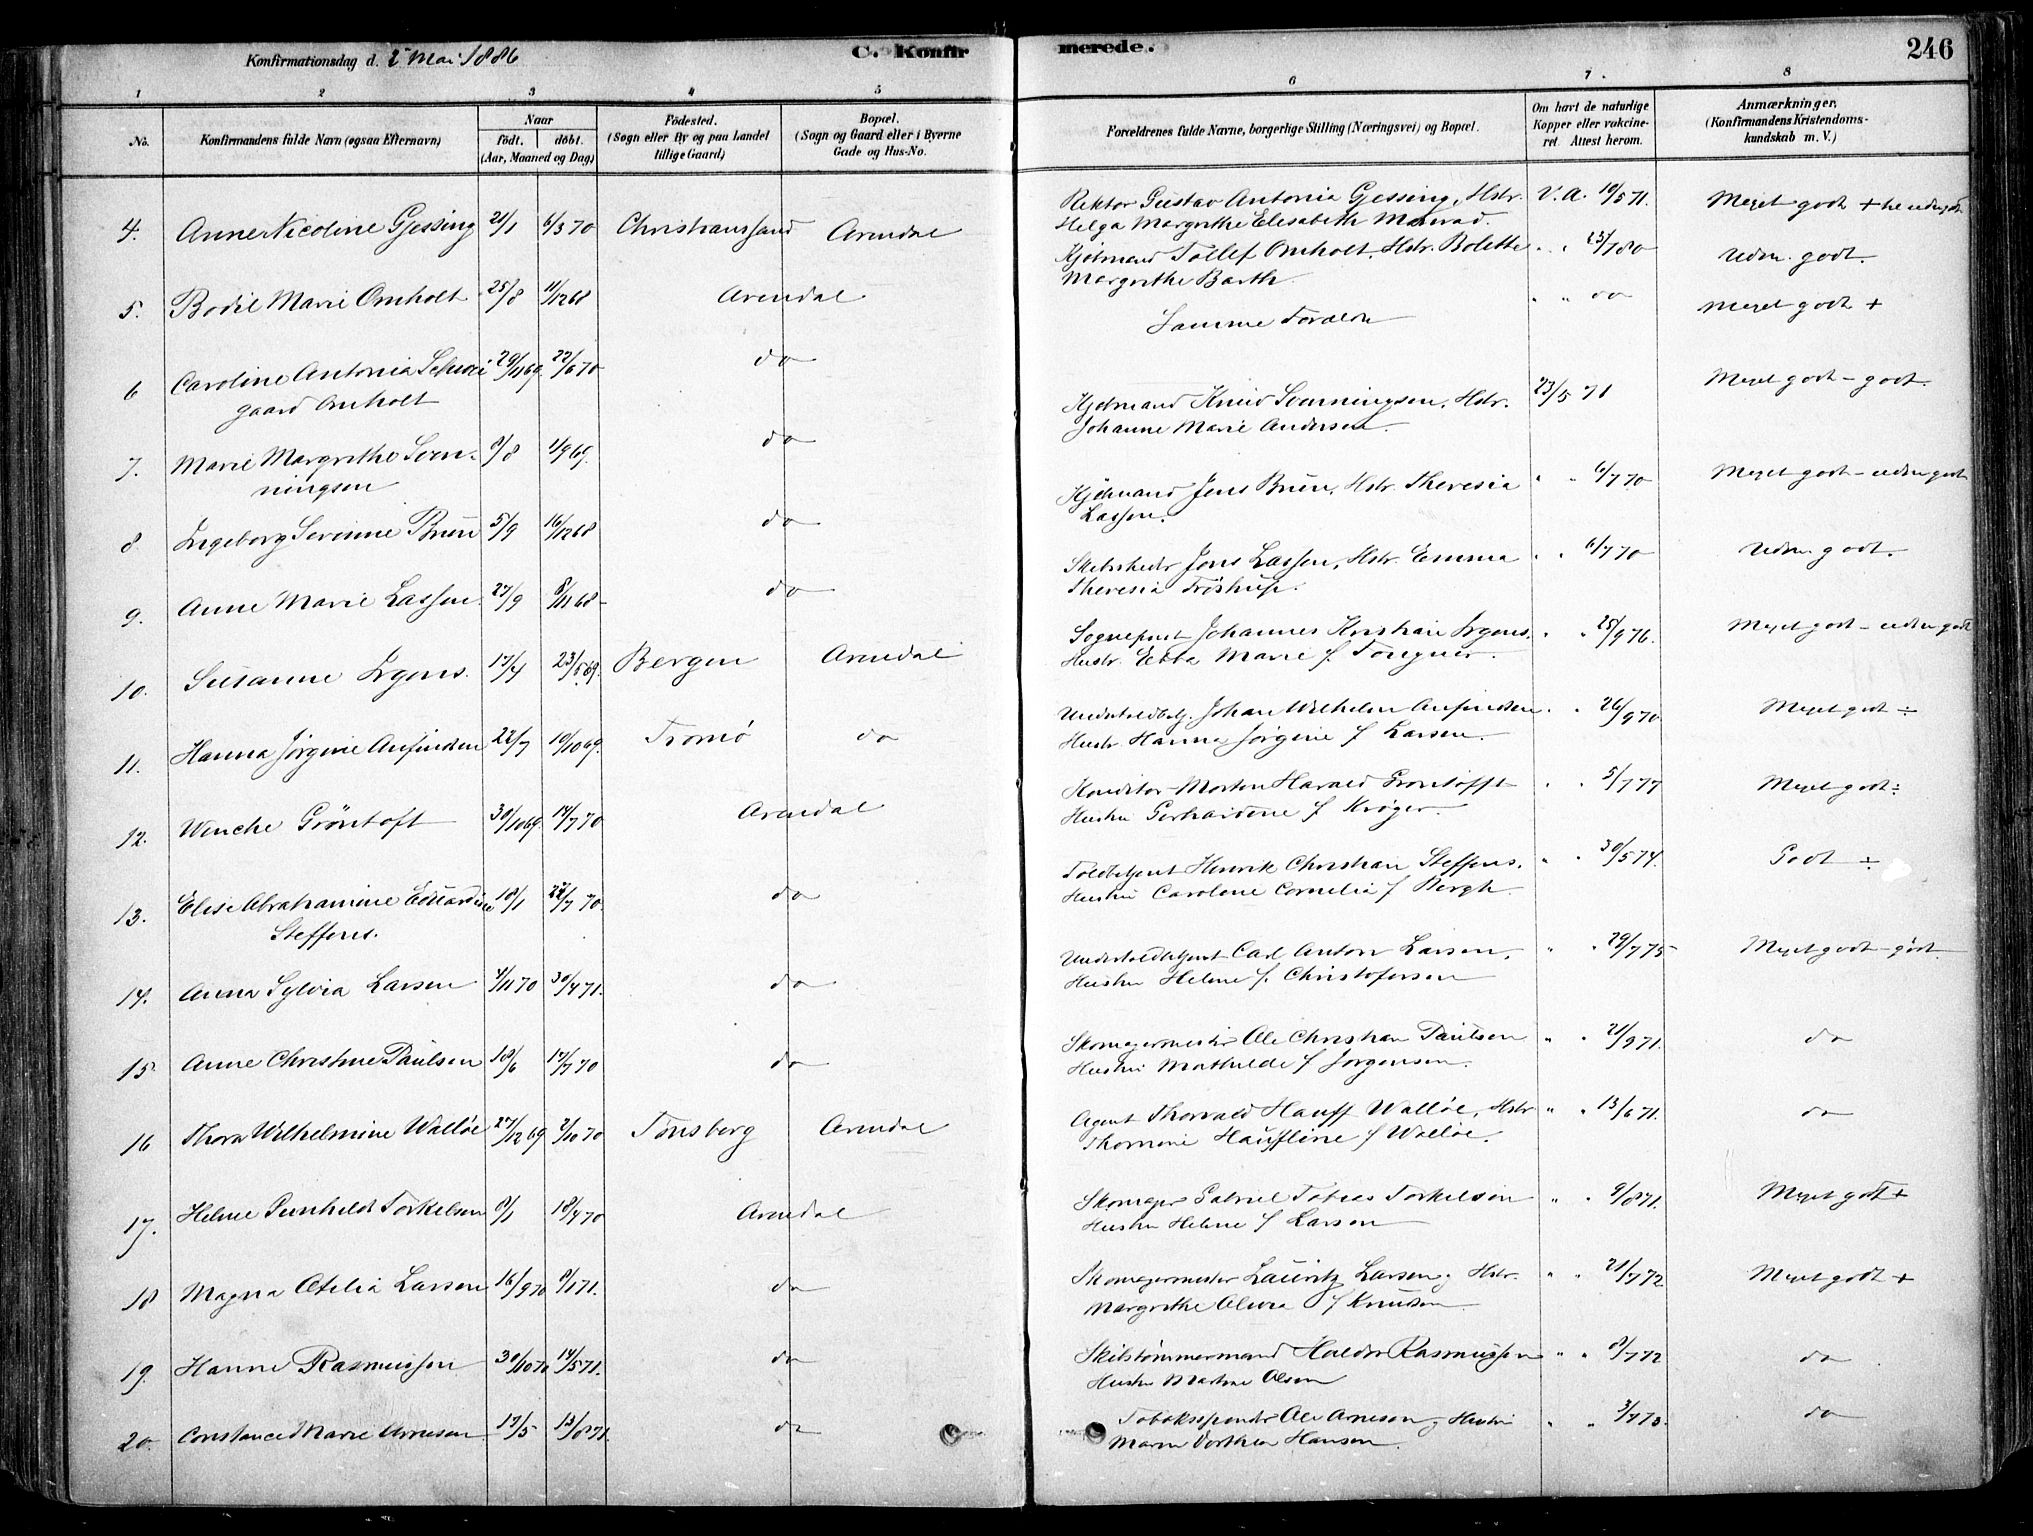 Konfirmationsdag d. 2 Mai 1886
C. Konfirmerede.
246
1 2 3 4 5 6 7. 8
No.
Konfirmandens fulde Navn (ogsaa Efternavn)
Naar
født. døbt.
(Aar, Maaned og Dag)
Fødested.
(Sogn eller By og paa Landet
tillige Gaard)
Bopæl.
(Sogn og Gaard eller i Byerne
Gade og Hus-No.
Forældrenes fulde Navne, borgerlige Stilling (Næringsvei) og Bopæl.
Om havt de naturlige
Kopper eller vakcine-
ret Attest herom.
Anmærkninger,
(Konfirmandens Kristendoms-
kundskab m. V.)
4. Anne Nicoline Gjessing 21/1 6/3 70 Christianssand Arendal
Rektor Gustav Antonio Gjessing, Hstr. V. A. 10/5 71. Meget godt +
Helga Margrethe Elisabeth Monrad.
5. Bodil Marie Omholt 25/8 11/12 68 Arendal
Kjøbmand Tellef Omholt, Hstr. Bolette " " 23/7 80 Udm. godt.
Margrethe Barth.
6 Caroline Antonia Schwei- 29/11 69. 22/6 70 do
gaard Omholt
Samme Forældre " " do Meget godt +
7. Marie Margrethe Sven- 9/8 1/9 69. do
ningsen
Kjøbmand Knud Svenningsen, Hstr. 23/5 71 Meget godt - godt.
Johanne Marie Andersen.
8. Ingeborg Severine Bruun 5/9 16/12 68 do
Kjøbmand Jens Bruun, Hstr. Theresia " " 6/7 70 Meget godt - udm godt
Lassen.
9. Anne Marie Lassen. 27/9 8/11 68 do
Skibsreder Jens Lassen, Hstr. Emma " " 6/7 70 Udm. godt.
Theresia Frøstrup.
10. Susanne Irgens. 17/4 23/5 69. Bergen Arendal
Sognepræst Johannes Kristian Irgens. " " 25/9 76. Meget godt - udm godt
Hustr. Ebba Marie f.
11. Hanna Jørgine Anfindsen 22/7 10/10 69. Tromø do
Undertoldbetj. Johan Wilhelm Anfindsen " " 26/9 70. Meget godt ÷
Hustr. Hanna Jørgine f Larsen.
12. Wenche Grøntoft 30/10 69. 14/7 70 Arendal
Konditor Morten Harald Grøntofft " " 5/7 77 Meget godt ÷
Hustru Gerhardine f Krøger.
13. Elise Abrahamine Edvardine 18/1 24/7 70. do
Steffens.
Toldbetjent Henrik Christian Steffens. " " 30/5 74. Godt ÷
Hustru Caroline Cornelia f Bergh.
14. Anna Sylvia Larsen 4/11 70 30/4 71. do
Undertoldbetjent Carl Anton Larsen, " " 29/7 75 Meget godt - godt.
Hustru Helene f. Christofersen
15 Anne Christine Paulsen 18/6 17/7 70 do
Skomagermester Ole Christian Paulsen " " 21/9 71. do
Hustru Mathilde f Jørgensen.
16 Thora Wilhelmine Walløe 27/12 69 2/10 70 Tønsberg Arendal
Agent Thorvald Hauff Walløe, Hstr " " 13/6 71. do
Thomine Hauffline f Walløe.
17. Helene Gunhild Torkelsen 9/1 18/4 70 Arendal
Skomager Gabriel Tobias Torkelsen " " 9/8 71. Meget godt +
Hustru Helene f Larsen
18 Magna Otelia Larsen 16/9 70 8/1 71. do
Skomagermester Lauritz Larsen, Hstr. " " 21/7 72 Meget godt +
Margrethe Olivia f Knudsen
19. Hanne Rasmussen 30/10 70 14/5 71. do
Skibstømmermand Halvor Rasmussen " " 8/7 72 do
Hustru Martine Olsen
20. Constance Marie Arnesen. 17/5 13/8 71. do
Tobakspinder Ole Arnesen, Hustru " " 3/7 73. do
Maren Dorthea Hansen.